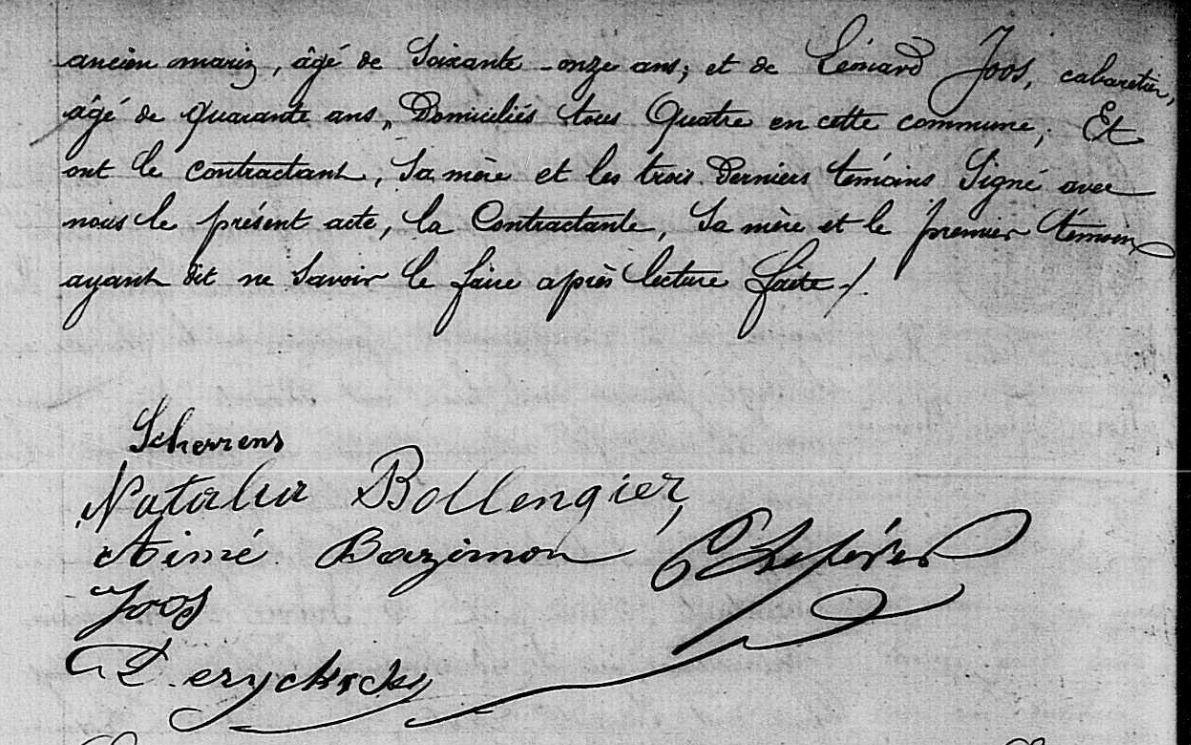 ancien marin, âgé de Soixante-onze ans; et de Léonard Joos, cabaretier,
âgé de Quarante ans, Domiciliés tous Quatre en cette commune; Et
ont le contractant, Sa mère et les trois Derniers témoins Signé avec
nous le présent acte, la Contractante, Sa mère et le premier témoin
ayant dit ne Savoir le faire après lecture faite ./.
Scherrens
Natalia Bollengier
Aimé Bazimon
Joos